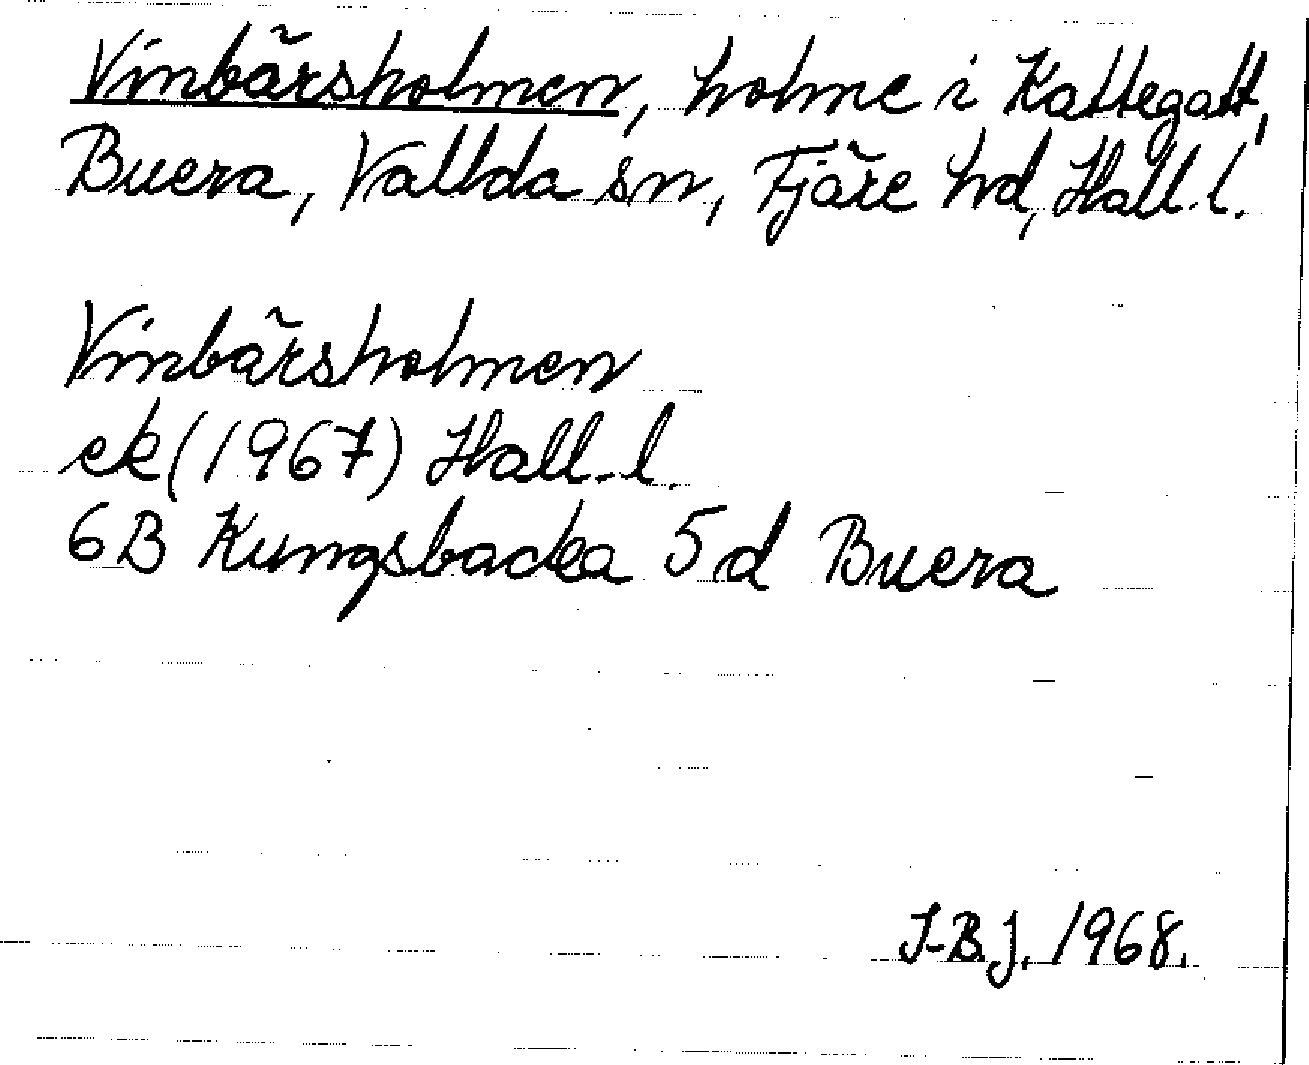 Vinbärsholmen, holme i Kattegatt,
Buera, Vallda sn, Fjäre hd, Hall.l.
Vinbärsholmen
ek (1967) Hall.l.
6B Kungsbacka 5d Buera
I-B.J. 1968.